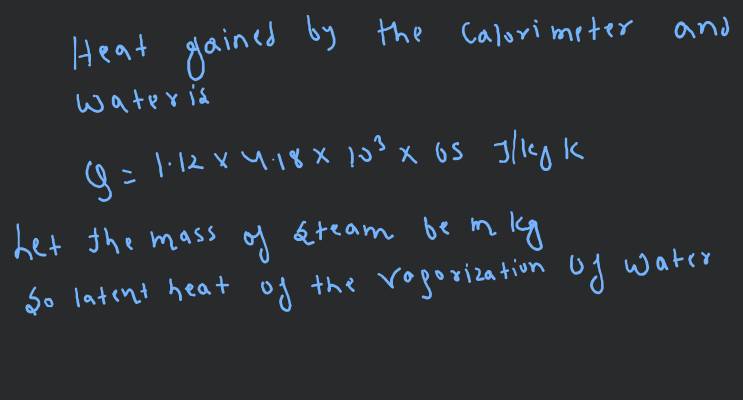 Heat gained by the Calorimeter and
water is
Q = 1.12 x 4.18 x 10³ x 65 J/kg K
Let the mass of steam be m kg
So latent heat of the vaporization of water